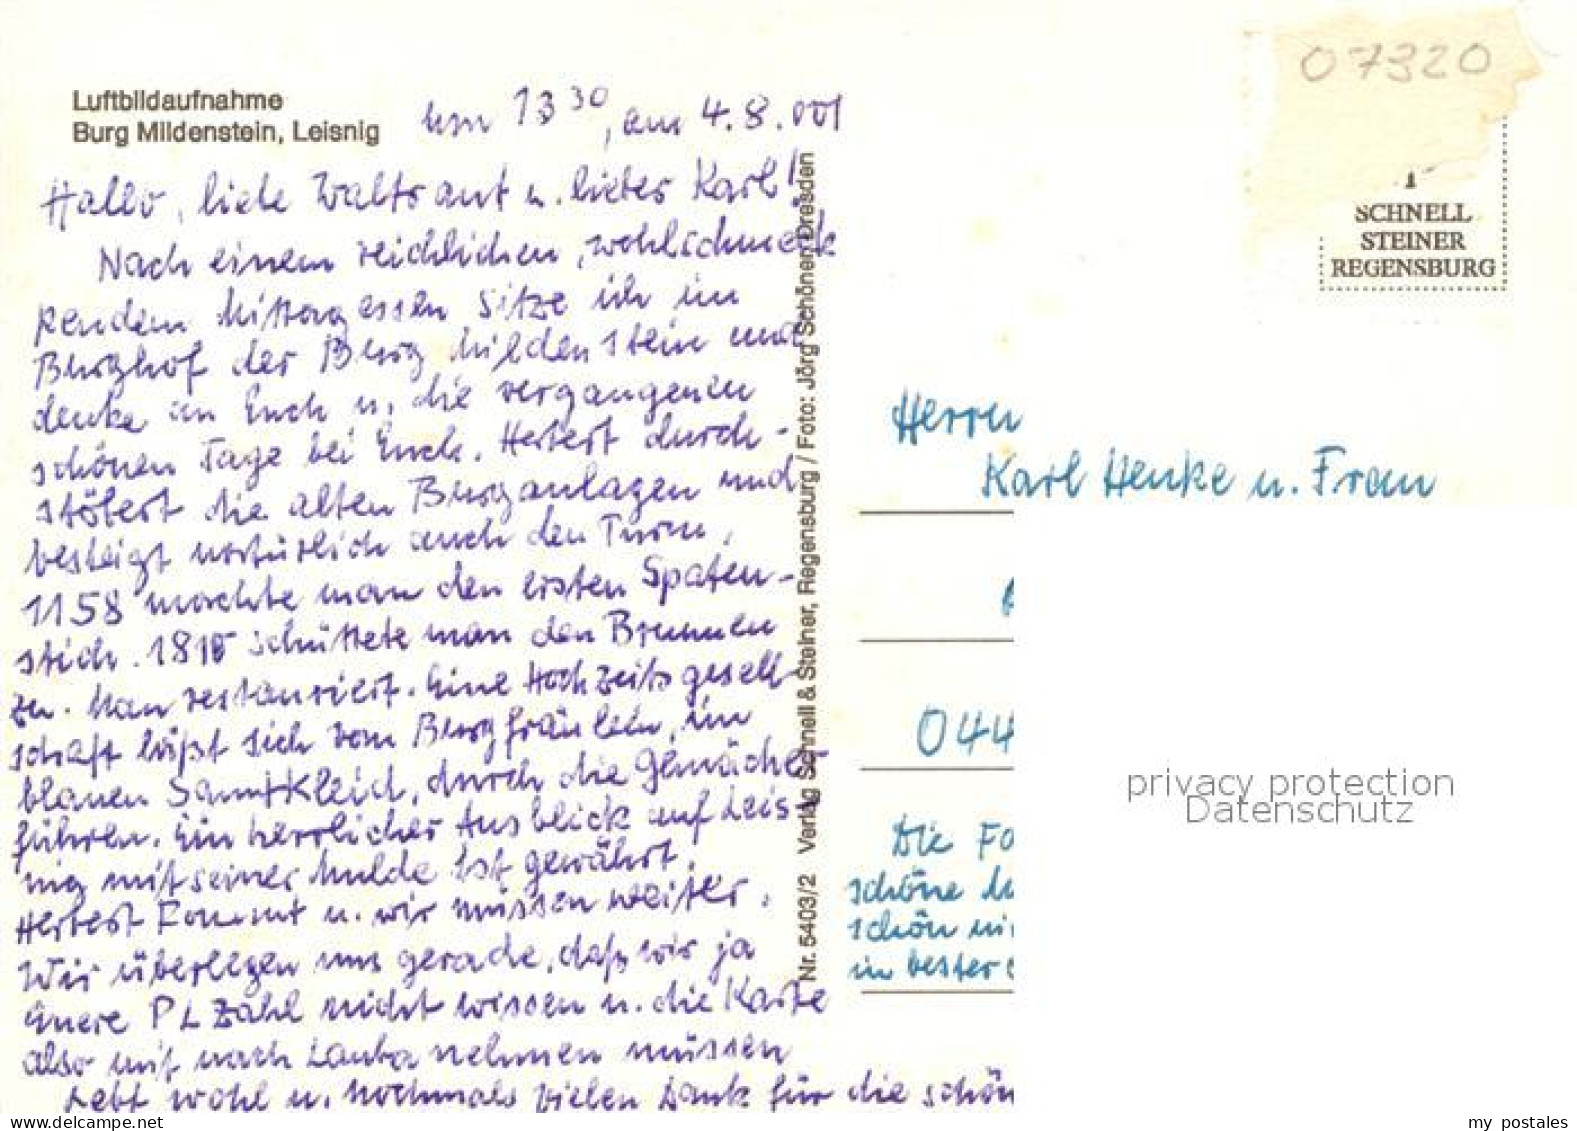 07320
Luftbildaufnahme
Burg Mildenstein, Leisnig
um 13 30, am 4.8.001
SCHNELL
STEINER
REGENSBURG
Hallo, liebe Waltraut u. lieber Karl!
Nach einem reichlichen, wohlschmeck
kendem Mittagessen sitze ich im
Burghof der Burg Mildenstein und
denke an Euch u. die vergangenen
schönen Tage bei Euch. Herbert durch-
stöbert die alten Burganlagen und
besteigt natürlich auch den Turm.
1158 machte man den ersten Spaten-
stich. 1810 schüttete man den Brunnen
zu. Man restauriert. Eine Hochzeitsgesell-
schaft läßt sich vom Burgfräulein, im
blauen Samtkleid, durch die Gemächer
führen. Ein herrlicher Ausblick auf Leis-
nig mit seiner Mulde ist gewährt.
Herbert kommt u. wir müssen weiter.
Wir überlegen uns gerade, daß wir ja
Euere PLZahl nicht wissen u. die Karte
also mit nach Lauba nehmen müssen
Lebt wohl u. nochmals vielen Dank für die schön
Nr. 5403/2 Verlag Schnell & Steiner, Regensburg / Foto: Jörg Schöner, Dresden
Herrn
Karl Henke u. Frau
044
Die Fo
schöne
schön
in bester
privacy protection
Datenschutz
www.delcampe.net
my_postales